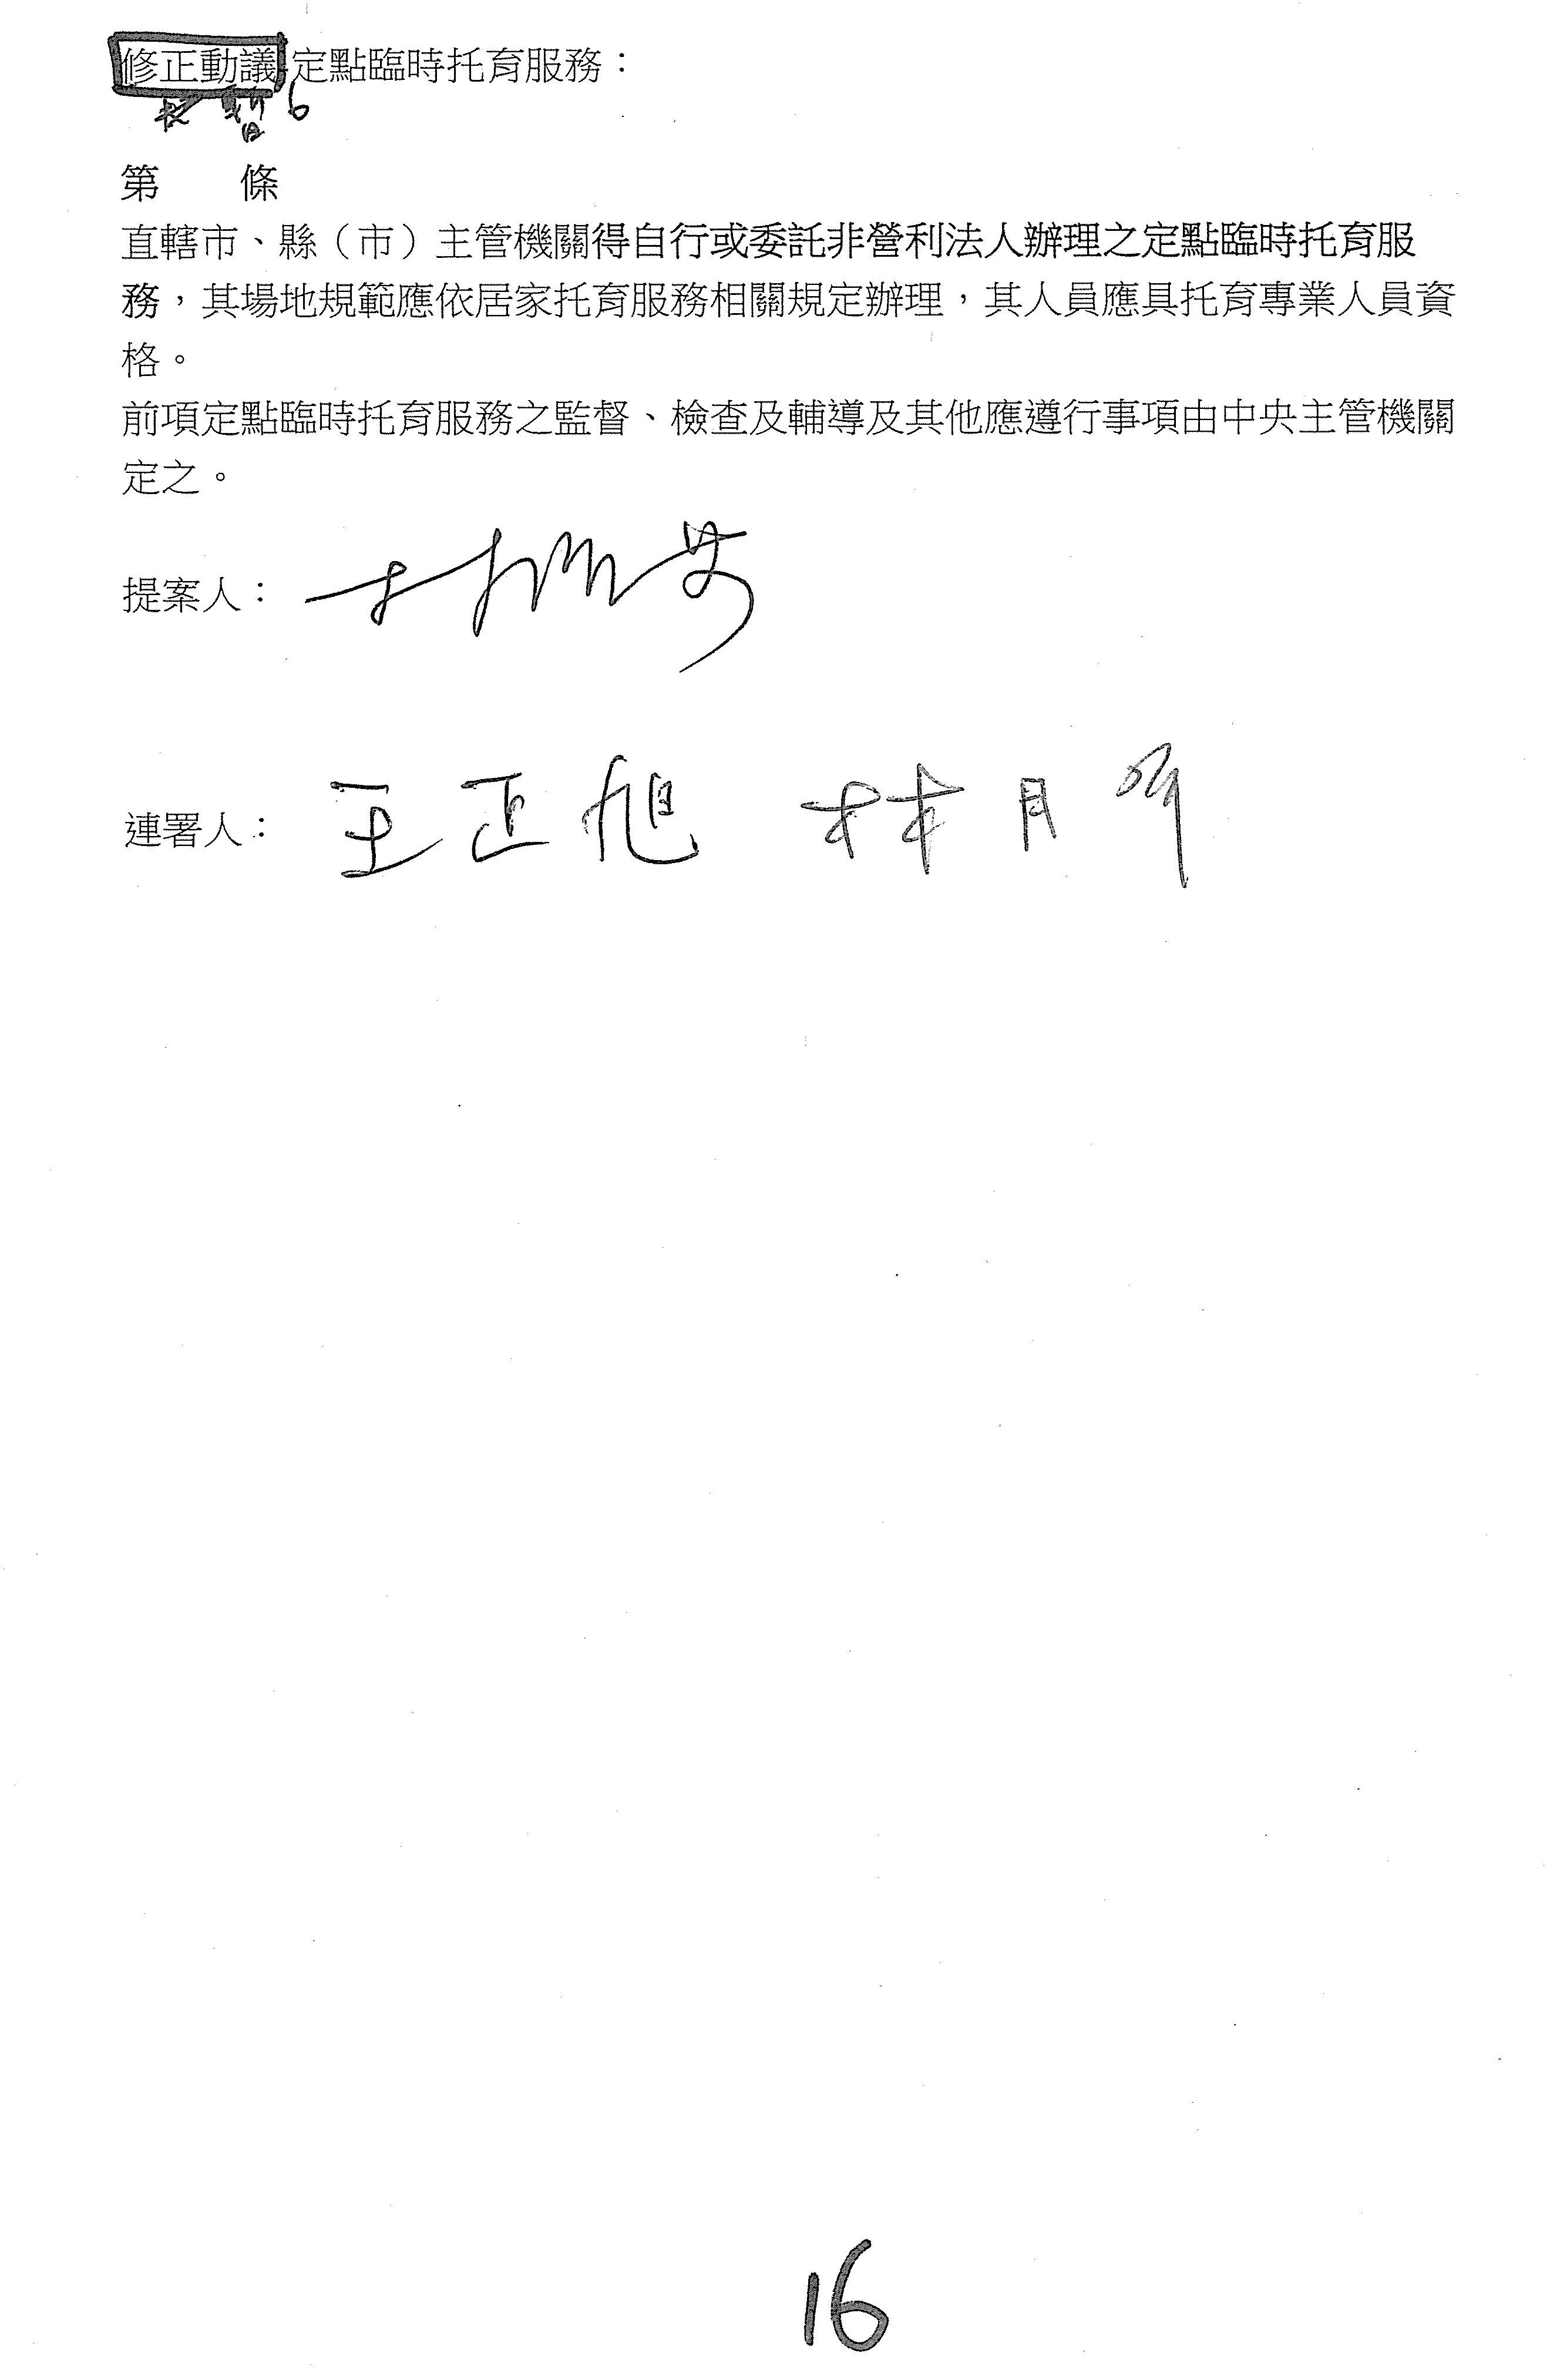 修正動議 定點臨時托育服務：
6
第　　條
直轄市、縣（市）主管機關得自行或委託非營利法人辦理之定點臨時托育服
務，其場地規範應依居家托育服務相關規定辦理，其人員應具托育專業人員資
格。
前項定點臨時托育服務之監督、檢查及輔導及其他應遵行事項由中央主管機關
定之。
提案人：
連署人： 王正旭 林月琴
16